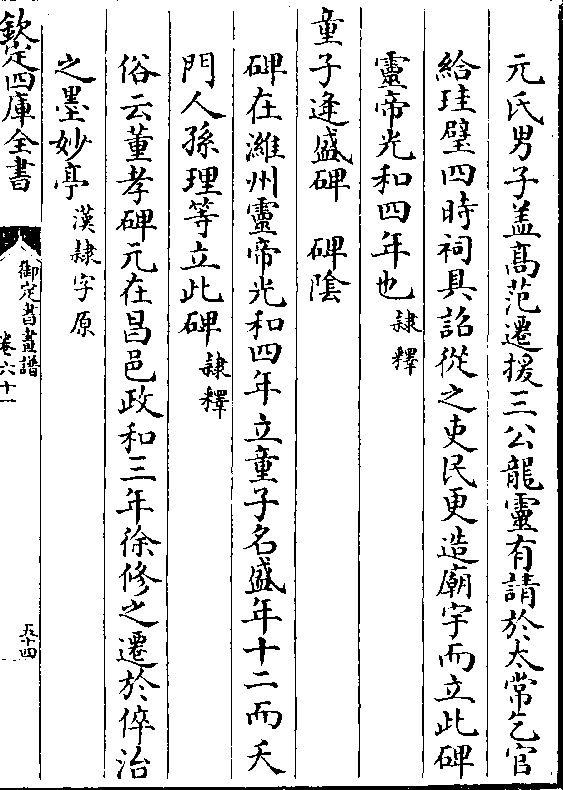 元氏男子盖髙范遷援三公龍靈有請於太常乞官
給珪璧四時祠具詔從之吏民更造廟宇而立此碑
靈帝光和四年也隷釋
童子逄盛碑 碑隂
碑在濰州靈帝光和四年立童子名盛年十二而夭
門人孫理等立此碑隷釋
俗云董孝碑元在昌邑政和三年徐修之遷於倅治
之墨妙亭漢隷字原
欽定四庫全書
御定書畫譜
卷六十一
五十四